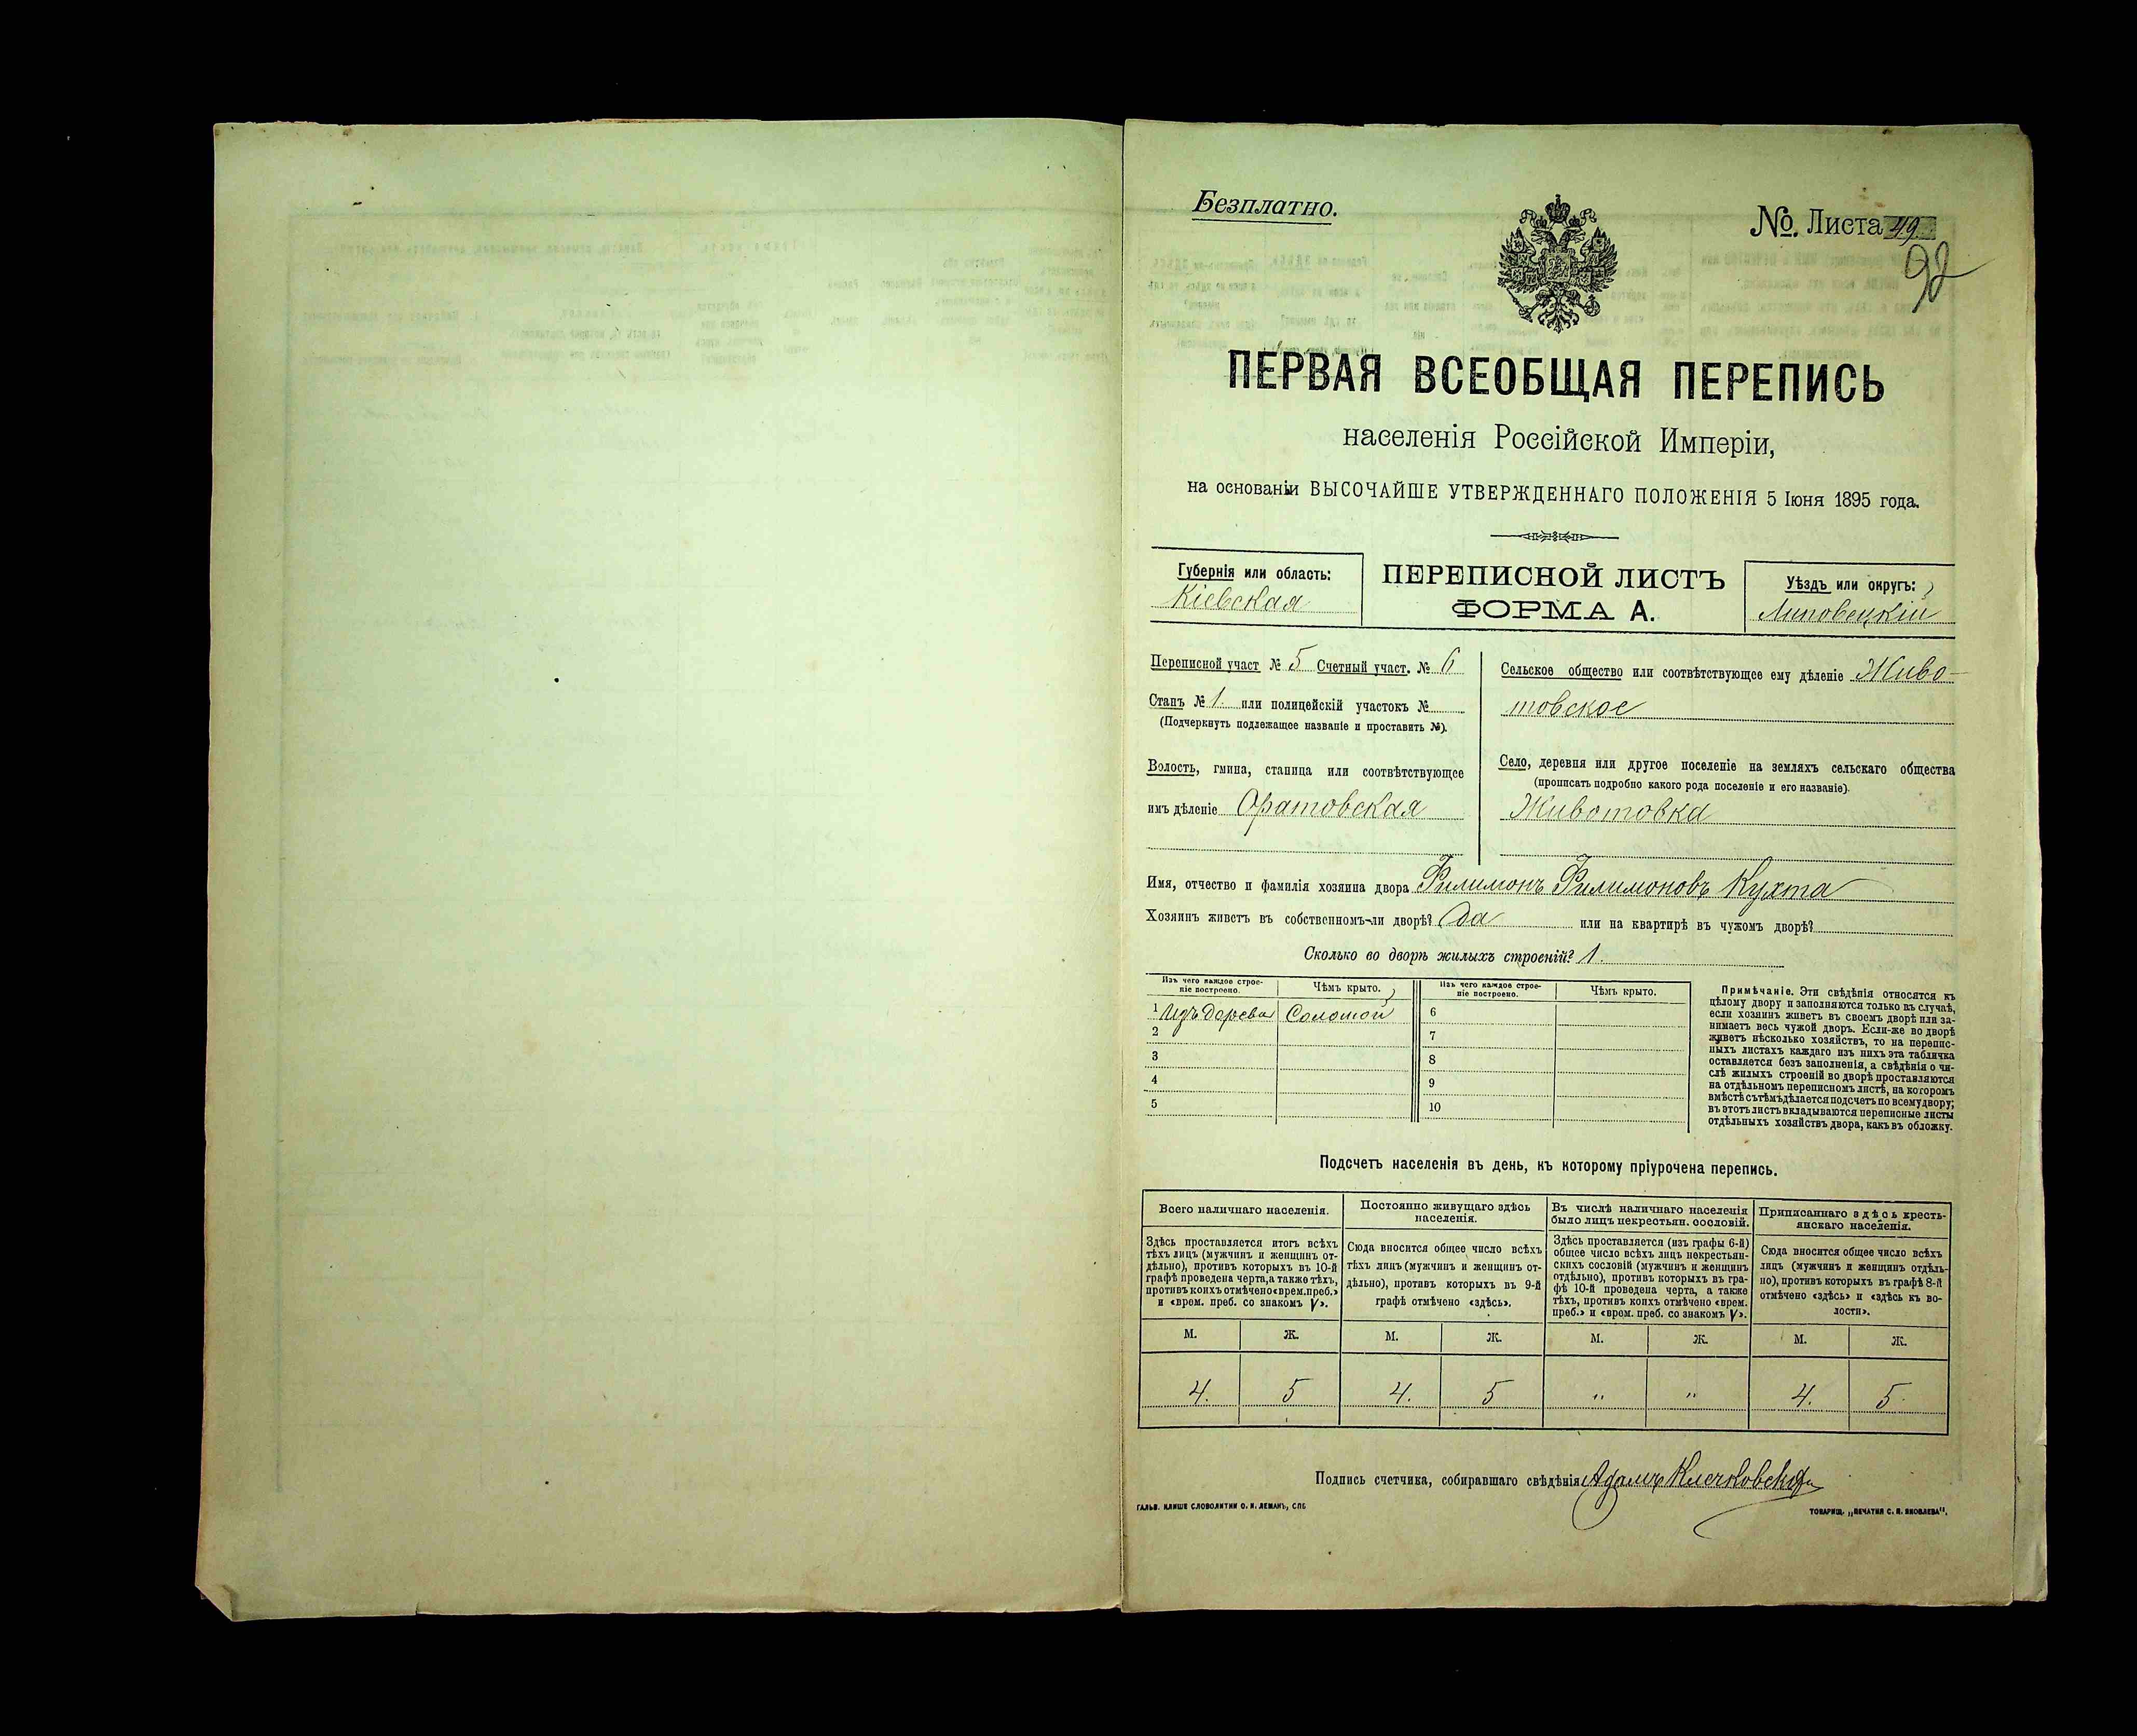 Безплатно.
№. Листа 49
92
ПЕРВАЯ ВСЕОБЩАЯ ПЕРЕПИСЬ
населенія Россійской Имперіи,
на основаніи ВЫСОЧАЙШЕ УТВЕРЖДЕННАГО ПОЛОЖЕНІЯ 5 Іюня 1895 года.
Губернія или область:
Кіевская
ПЕРЕПИСНОЙ ЛИСТЪ
ФОРМА А.
Уѣздъ или округъ:
Липовецкій
Переписной участ № 5 Счетный участ. № 6
Станъ № 1. или полицейскій участокъ №
(Подчеркнуть подлежащее названіе и проставить №).
Волость, гмина, станица или соотвѣтствующее
имъ дѣленіе Оратовская
Сельское общество или соотвѣтствующее ему дѣленіе Живо-
товское
Село, деревня или другое поселеніе на земляхъ сельскаго общества
(прописать подробно какого рода поселеніе и его названіе).
Животовка
Имя, отчество и фамилія хозяина двора Филимонъ Филимоновъ Кухта
Хозяинъ живетъ въ собственномъ-ли дворѣ? Да или на квартирѣ въ чужомъ дворѣ?
Сколько во дворѣ жилыхъ строеній? 1.
Изъ чего каждое строе-
ніе построено.
Чѣмъ крыто.
Изъ чего каждое строе-
ніе построено.
Чѣмъ крыто.
1 Изъ дерева Соломой
2
3
4
5
6
7
8
9
10
Примѣчаніе. Эти свѣдѣнія относятся къ
цѣлому двору и заполняются только въ случаѣ,
если хозяинъ живетъ въ своемъ дворѣ или за-
нимаетъ весь чужой дворъ. Если-же во дворѣ
живетъ нѣсколько хозяйствъ, то на перепис-
ныхъ листахъ каждаго изъ нихъ эта табличка
оставляется безъ заполненія, а свѣдѣнія о чи-
слѣ жилыхъ строеній во дворѣ проставляются
на отдѣльномъ переписномъ листѣ, на которомъ
вмѣстѣ съ тѣмъ дѣлается подсчетъ по всему двору;
въ этотъ листъ вкладываются переписные листы
отдѣльныхъ хозяйствъ двора, какъ въ обложку.
Подсчетъ населенія въ день, къ которому пріурочена перепись.
Всего наличнаго населенія.
Здѣсь проставляется итогъ всѣхъ
тѣхъ лицъ (мужчинъ и женщинъ от-
дѣльно), противъ которыхъ въ 10-й
графѣ проведена черта, а также тѣхъ,
противъ коихъ отмѣчено «врем. преб.»
и «врем. преб. со знакомъ V».
М. Ж.
4. 5
Постоянно живущаго здѣсь
населенія.
Сюда вносится общее число всѣхъ
тѣхъ лицъ (мужчинъ и женщинъ от-
дѣльно), противъ которыхъ въ 9-й
графѣ отмѣчено «здѣсь».
М. Ж.
4. 5
Въ числѣ наличнаго населенія
было лицъ некрестьян. сословій.
Здѣсь проставляется (изъ графы 6-й)
общее число всѣхъ лицъ некрестьян-
скихъ сословій (мужчинъ и женщинъ
отдѣльно), противъ которыхъ въ гра-
фѣ 10-й проведена черта, а также
тѣхъ, противъ коихъ отмѣчено «врем.
преб.» и «врем. преб. со знакомъ V».
М. Ж.
" "
Приписаннаго здѣсь кресть-
янскаго населенія.
Сюда вносится общее число всѣхъ
лицъ (мужчинъ и женщинъ отдѣль-
но), противъ которыхъ въ графѣ 8-й
отмѣчено «здѣсь» и «здѣсь къ во-
лости».
М. Ж.
4. 5
Подпись счетчика, собиравшаго свѣдѣнія Адамъ Клечковскій
ГАЛЬВ. КЛИШЕ СЛОВОЛИТНИ О. И. ЛЕМАНЪ, СПБ
ТОВАРИЩ. „ПЕЧАТНЯ С. П. ЯКОВЛЕВА".